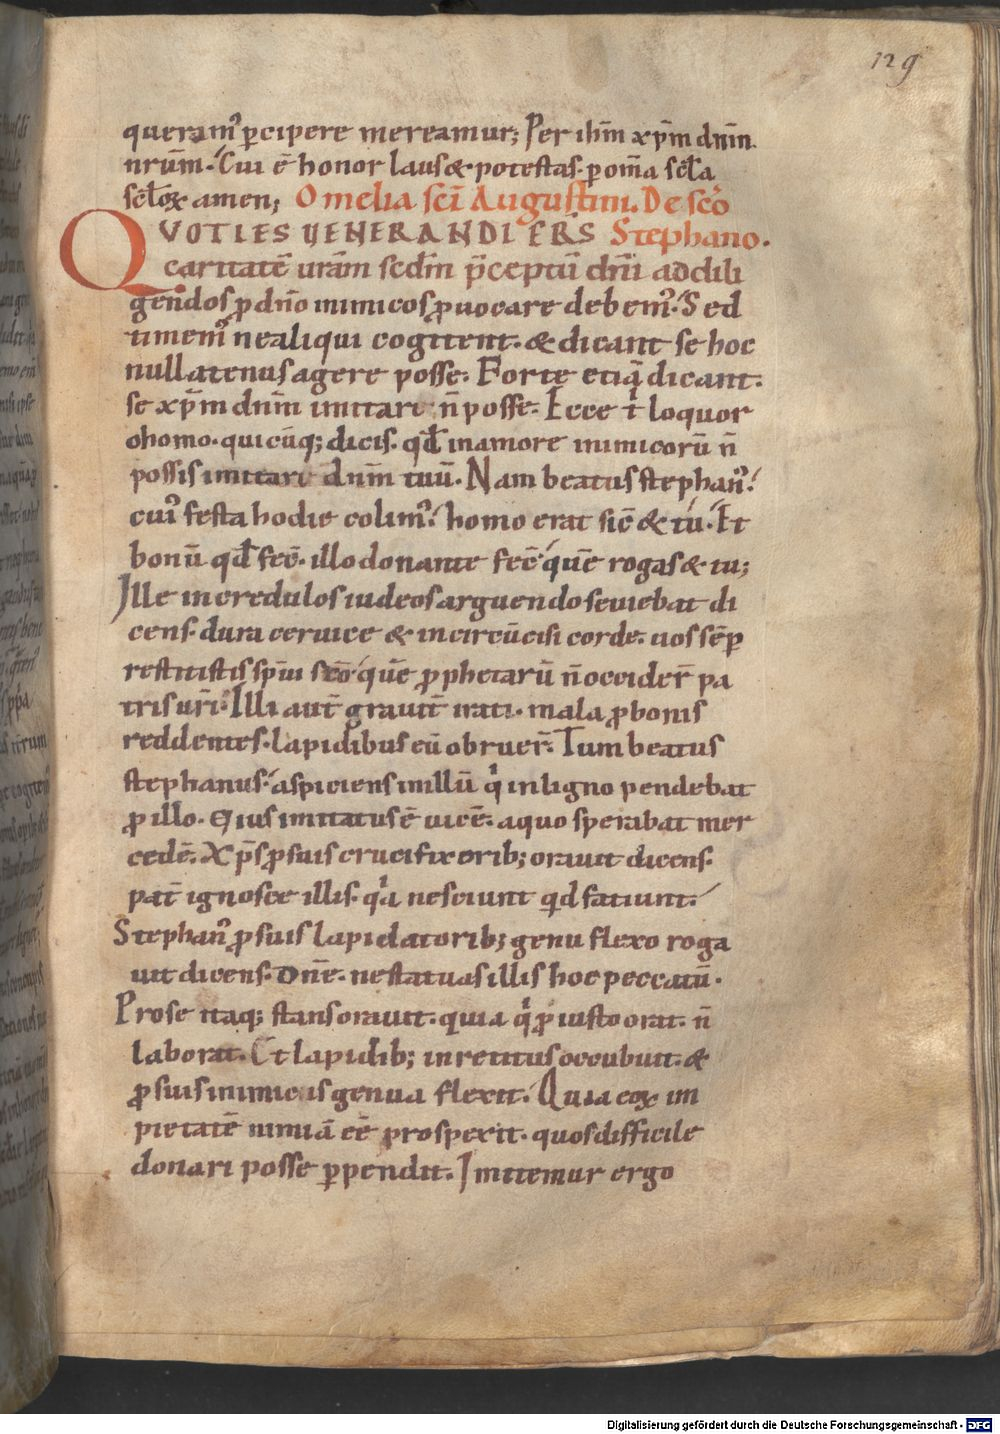 129
queram᷒ ꝑcipere mereamur; Per ihm̄ xp̄m dnm̄
nrūm. Cui ē honor laus & potestas. ꝑ om̄a scl̄a
scl̄oꝝ amen; Omelia scī Augustini. De scō
QVOTIES VENERANDI FRS̄ Stephano.
caritatē uram̄ scdm̄ p̄ceptū dnī ad dili
gendos ꝓ dn̄o inimicos ꝓuocare debem᷒. Sed
timem᷒ ne aliqui cogitent. & dicant se hoc
nullatenus agere posse. Forte etiā dicant.
se xp̄m dnm̄ imitari n̄ posse. Ecce t̄ loquor
o homo. quicūq; dicis. qd̄ in amore inimicorū n̄
possis imitari dnm̄ tuū. Nam beatus stephan᷒.
cui᷒ festa hodie colim᷒. homo erat sic̄ & tu. Et
bonū qd̄ fec̄. illo donante fec̄ quē rogas & tu;
Ille incredulos iudeos arguendo seuiebat di
cens. dura ceruice & incircūcisi corde. uos sēp
restitistis spūi scō quē ꝓphetarū n̄ occider̄ pa
tris urī. Illi aut̄ grauit̄ irati. mala ꝓ bonis
reddentes. lapidibus eū obruer̄. Tum beatus
stephanus. aspiciens in illū qͥ in ligno pendebat
ꝓ illo. Eius imitatus ē uicē. a quo sperabat mer
cedē. Xp̄s ꝓ suis crucifixorib; orauit dicens.
pat̄ ignosce illis. qͥa nesciunt qid fatiunt.
Stephan᷒ ꝓ suis lapidatorib; genu flexo roga
uit dicens. Dn̄e. ne statuas illis hoc peccatū.
Pro se itaq; stans orauit. quia qͥ ꝓ iusto orat. n̄
laborat. Et lapidib; inretitus occubuit. &
ꝓ suis inimicis genua flexit. Quia eoꝝ im
pietatē nimiā eē prospexit. quos difficile
donari posse ꝑpendit. Imitemur ergo
Digitalisierung gefördert durch die Deutsche Forschungsgemeinschaft - DFG